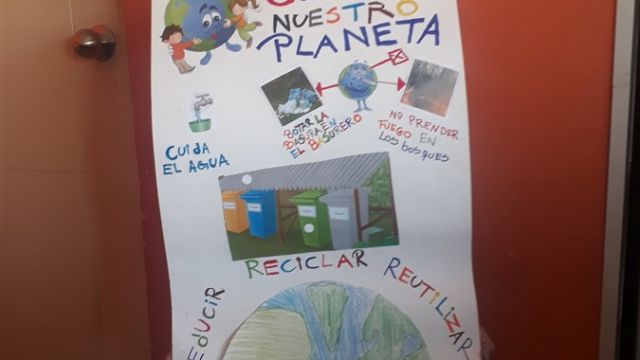 NUESTRO
PLANETA
CUIDA
EL AGUA
BOTAR LA
BASURA EN
EL BASURERO
NO PRENDER
FUEGO EN
LOS bosques
REdUCIR RECICLAR REUTILIZAR